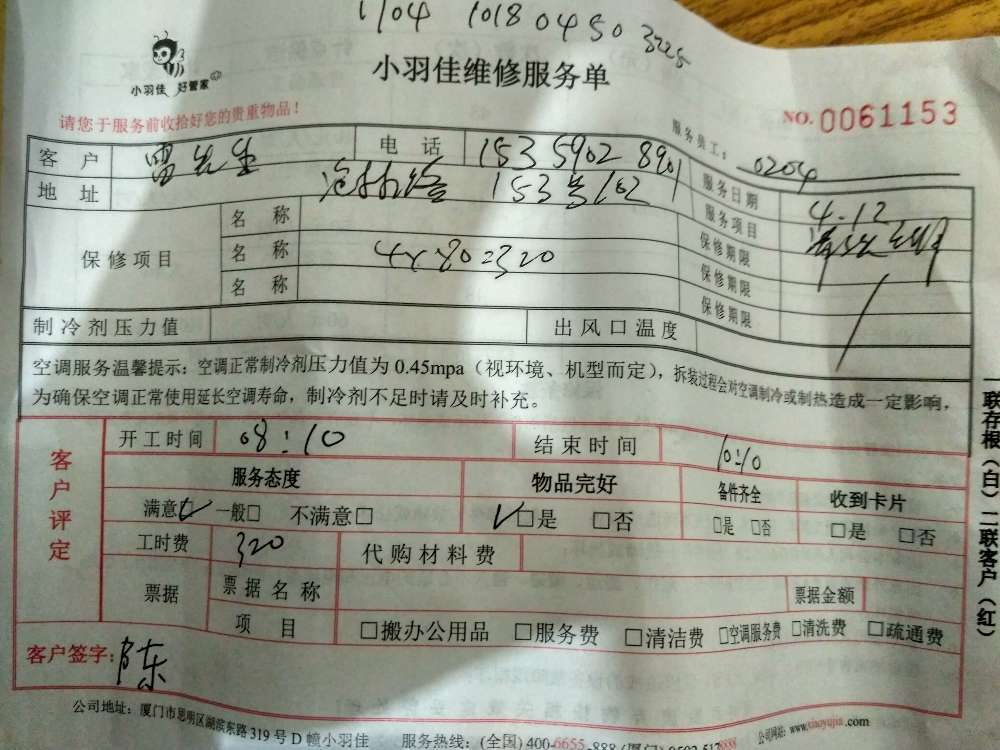 1704 1018 0450 3225
小羽佳 好管家
小羽佳维修服务单
请您于服务前收拾好您的贵重物品！
NO. 0061153
服务员工： 0204
客户 雷先生 电话 15359028901 服务日期 4.12
地址 153号102 服务项目
保修项目 名称 保修期限
名称 4x80=320 保修期限
名称 保修期限
制冷剂压力值 出风口温度
空调服务温馨提示：空调正常制冷剂压力值为 0.45mpa（视环境、机型而定），拆装过程会对空调制冷或制热造成一定影响，
为确保空调正常使用延长空调寿命，制冷剂不足时请及时补充。
客户评定
开工时间 08:10 结束时间 10:10
服务态度 物品完好 备件齐全 收到卡片
满意☑ 一般□ 不满意□ ☑是 □否 □是 □否 □是 □否
工时费 320 代购材料费
票据 票据名称 票据金额
项目 □搬办公用品 □服务费 □清洁费 □空调服务费 □清洗费 □疏通费
客户签字: 陈
公司地址：厦门市思明区湖滨东路 319 号 D 幢小羽佳 服务热线：(全国) 400-6655-888 (厦门) 公司网站：www.xiaoyujia.com
一联存根（白）二联客户（红）